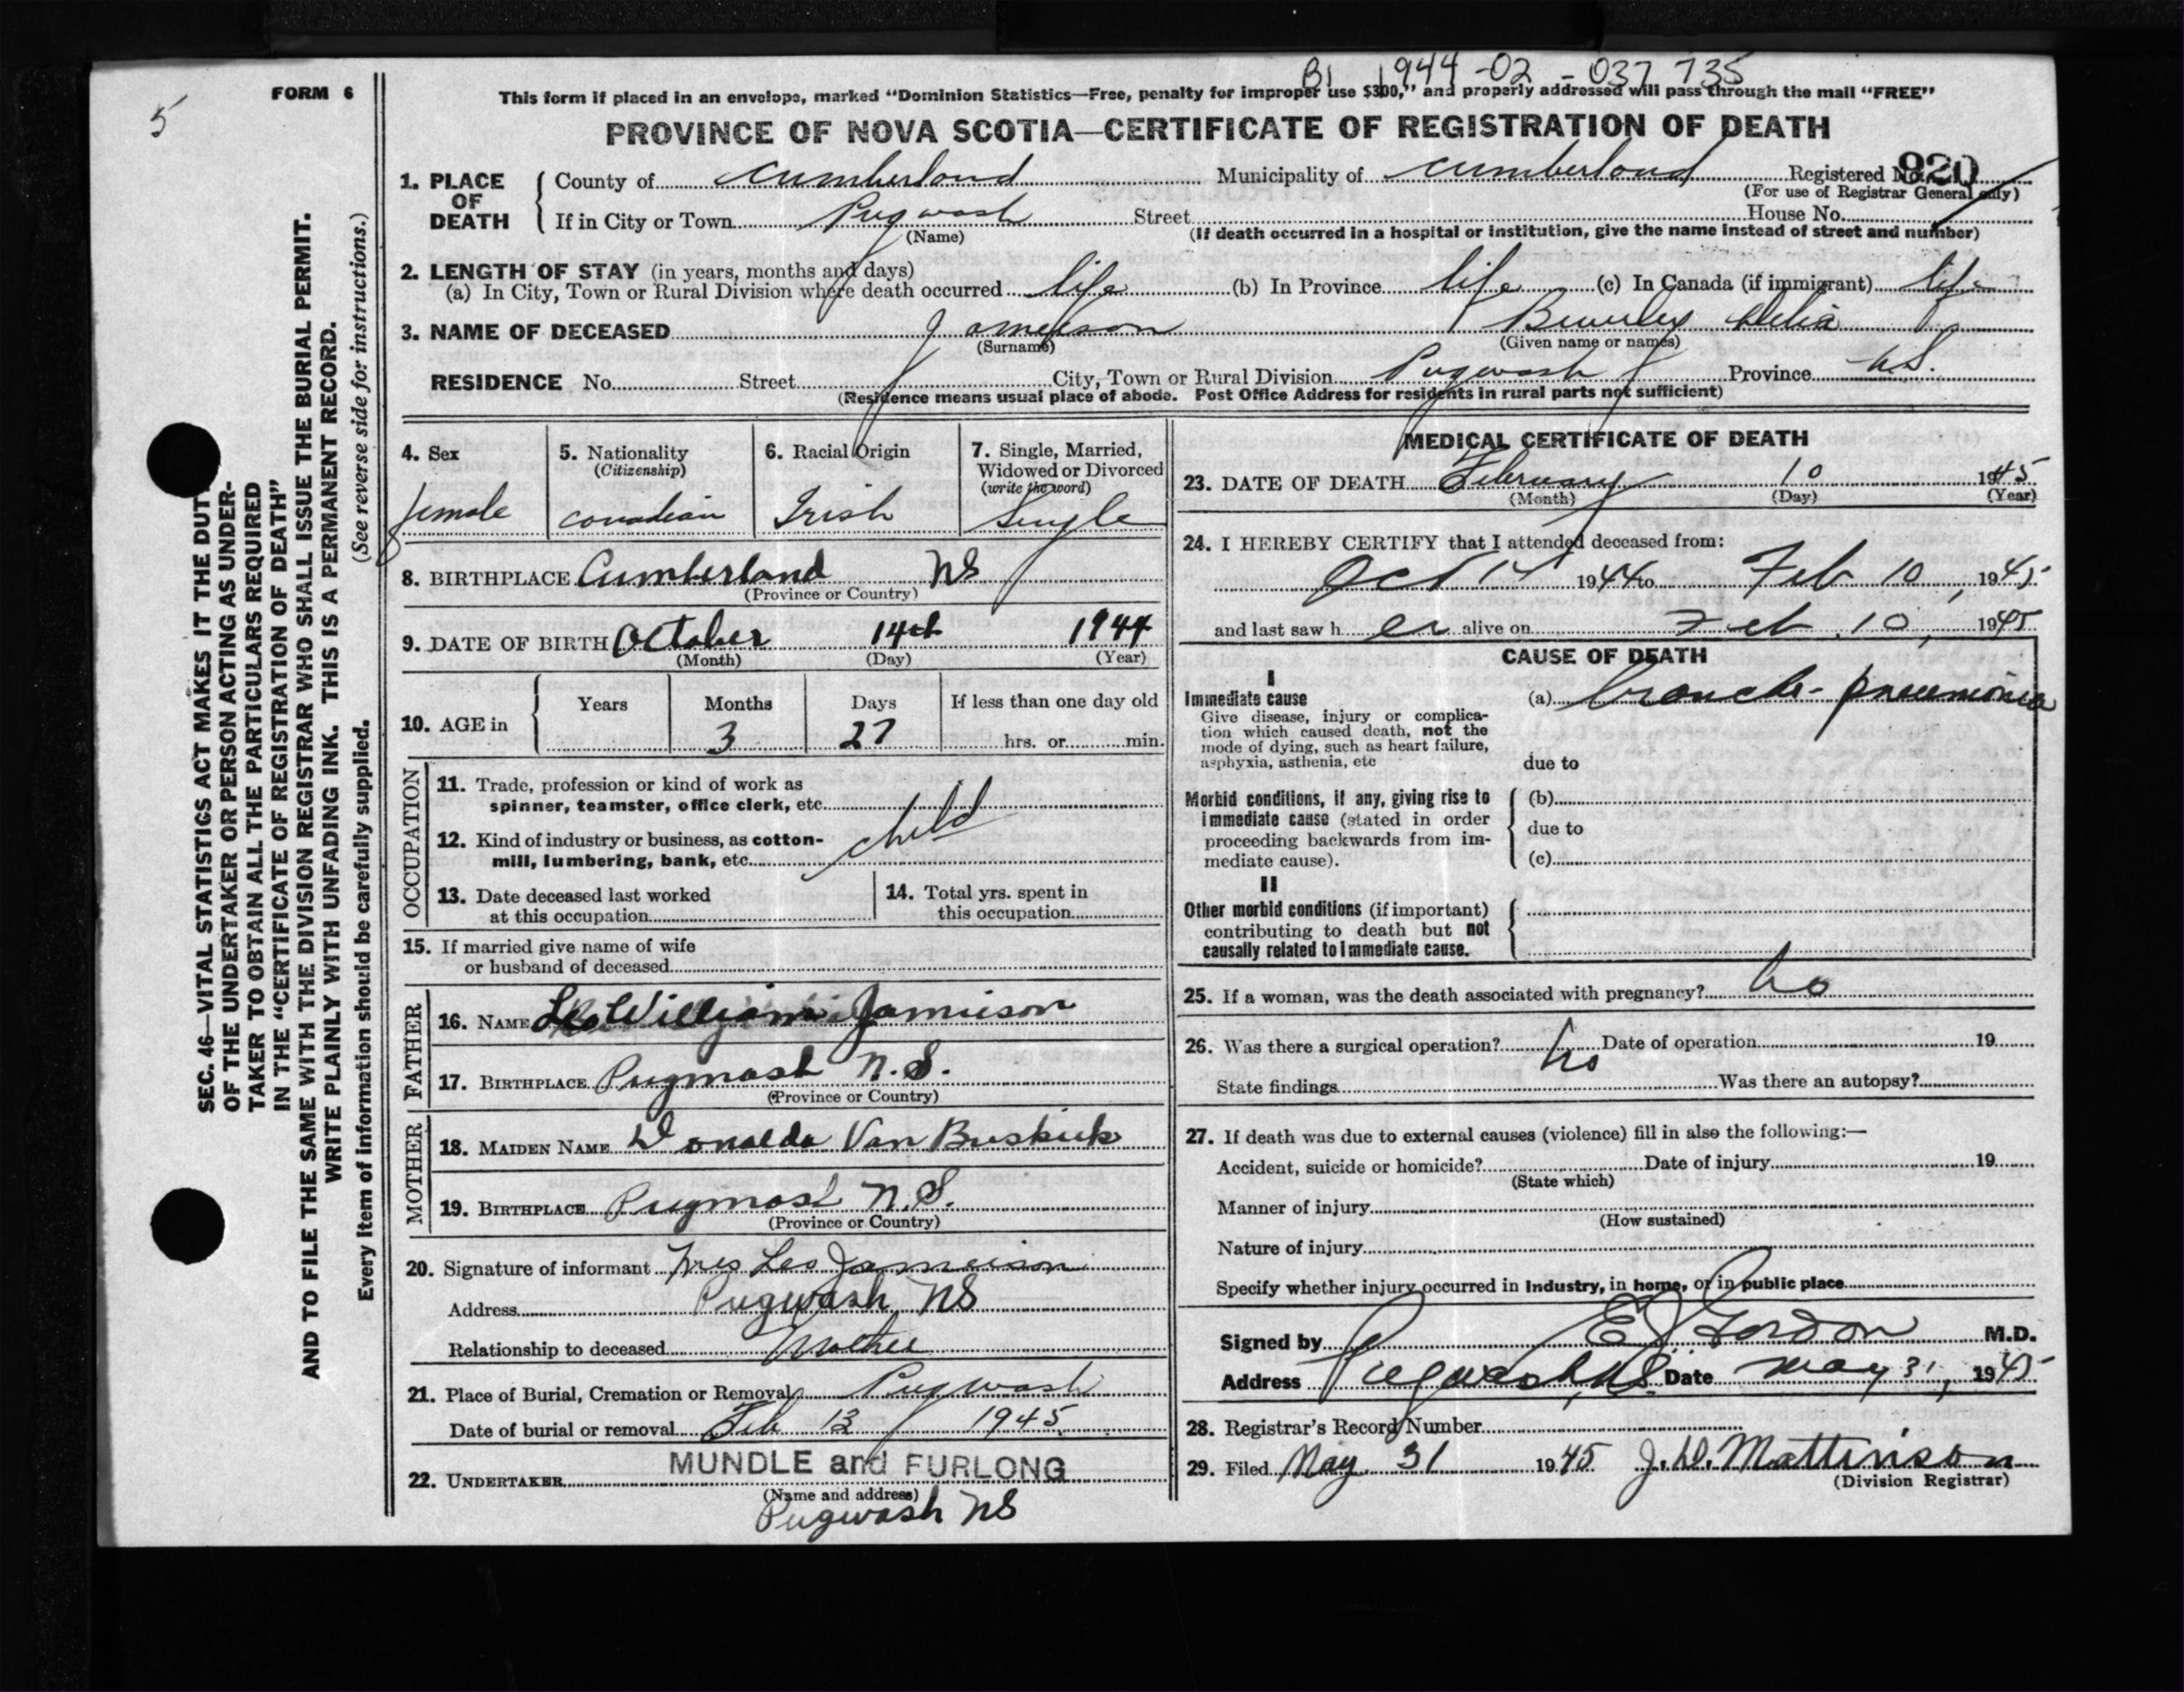 B1 1944-02-037735
5
FORM 6
This form if placed in an envelope, marked "Dominion Statistics—Free, penalty for improper use $300," and properly addressed will pass through the mail "FREE"
PROVINCE OF NOVA SCOTIA—CERTIFICATE OF REGISTRATION OF DEATH
SEC. 46—VITAL STATISTICS ACT MAKES IT THE DUTY
OF THE UNDERTAKER OR PERSON ACTING AS UNDER-
TAKER TO OBTAIN ALL THE PARTICULARS REQUIRED
IN THE "CERTIFICATE OF REGISTRATION OF DEATH"
AND TO FILE THE SAME WITH THE DIVISION REGISTRAR WHO SHALL ISSUE THE BURIAL PERMIT.
WRITE PLAINLY WITH UNFADING INK. THIS IS A PERMANENT RECORD.
Every item of information should be carefully supplied. (See reverse side for instructions.)
1. PLACE OF DEATH
County of Cumberland Municipality of Cumberland Registered No. 820
(For use of Registrar General only)
If in City or Town Pugwash Street House No.
(Name) (If death occurred in a hospital or institution, give the name instead of street and number)
2. LENGTH OF STAY (in years, months and days)
(a) In City, Town or Rural Division where death occurred life (b) In Province life (c) In Canada (if immigrant) life
3. NAME OF DECEASED Jameison Beverley Delia
(Surname) (Given name or names)
RESIDENCE No. Street City, Town or Rural Division Pugwash Province NS.
(Residence means usual place of abode. Post Office Address for residents in rural parts not sufficient)
4. Sex female
5. Nationality (Citizenship) Canadian
6. Racial Origin Irish
7. Single, Married, Widowed or Divorced (write the word) Single
8. BIRTHPLACE Cumberland NS
(Province or Country)
9. DATE OF BIRTH October 14th 1944
(Month) (Day) (Year)
10. AGE in Years Months 3 Days 27 If less than one day old hrs. or min.
OCCUPATION
11. Trade, profession or kind of work as
spinner, teamster, office clerk, etc.
child
12. Kind of industry or business, as cotton-
mill, lumbering, bank, etc.
13. Date deceased last worked
at this occupation
14. Total yrs. spent in
this occupation
15. If married give name of wife
or husband of deceased
FATHER
16. NAME Leo William Jamieson
17. BIRTHPLACE Pugwash N.S.
(Province or Country)
MOTHER
18. MAIDEN NAME Donalda Van Buskirk
19. BIRTHPLACE Pugwash N.S.
(Province or Country)
20. Signature of informant Mrs Leo Jameison
Address Pugwash, NS
Relationship to deceased Mother
21. Place of Burial, Cremation or Removal Pugwash
Date of burial or removal Feb 13 1945
22. UNDERTAKER MUNDLE and FURLONG
(Name and address)
Pugwash NS
MEDICAL CERTIFICATE OF DEATH
23. DATE OF DEATH February 10 1945
(Month) (Day) (Year)
24. I HEREBY CERTIFY that I attended deceased from:
Oct 14 1944 to Feb 10, 1945
and last saw her alive on Feb. 10, 1945
CAUSE OF DEATH
I
Immediate cause
Give disease, injury or complica-
tion which caused death, not the
mode of dying, such as heart failure,
asphyxia, asthenia, etc
(a) broncho-pneumonia
due to
Morbid conditions, if any, giving rise to
immediate cause (stated in order
proceeding backwards from im-
mediate cause).
(b)
due to
(c)
II
Other morbid conditions (if important)
contributing to death but not
causally related to immediate cause.
25. If a woman, was the death associated with pregnancy? no
26. Was there a surgical operation? no Date of operation 19
State findings Was there an autopsy?
27. If death was due to external causes (violence) fill in also the following:—
Accident, suicide or homicide? Date of injury 19
(State which)
Manner of injury
(How sustained)
Nature of injury
Specify whether injury occurred in industry, in home, or in public place
Signed by E J Gordon M.D.
Address Pugwash, NS Date May 31, 1945
28. Registrar's Record Number
29. Filed May 31 1945 J. D. Mattinson
(Division Registrar)